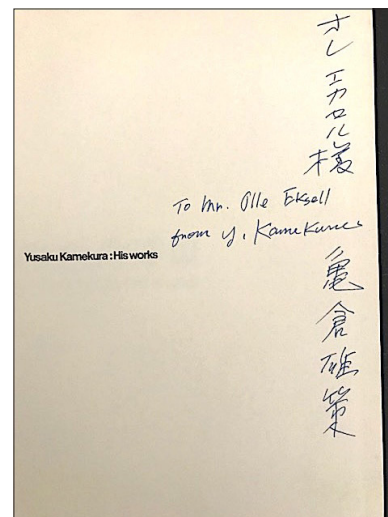 オレエカロル様
To Mr. Olle Eksell
from Y. Kamekura
亀倉雄策
Yusaku Kamekura : His works